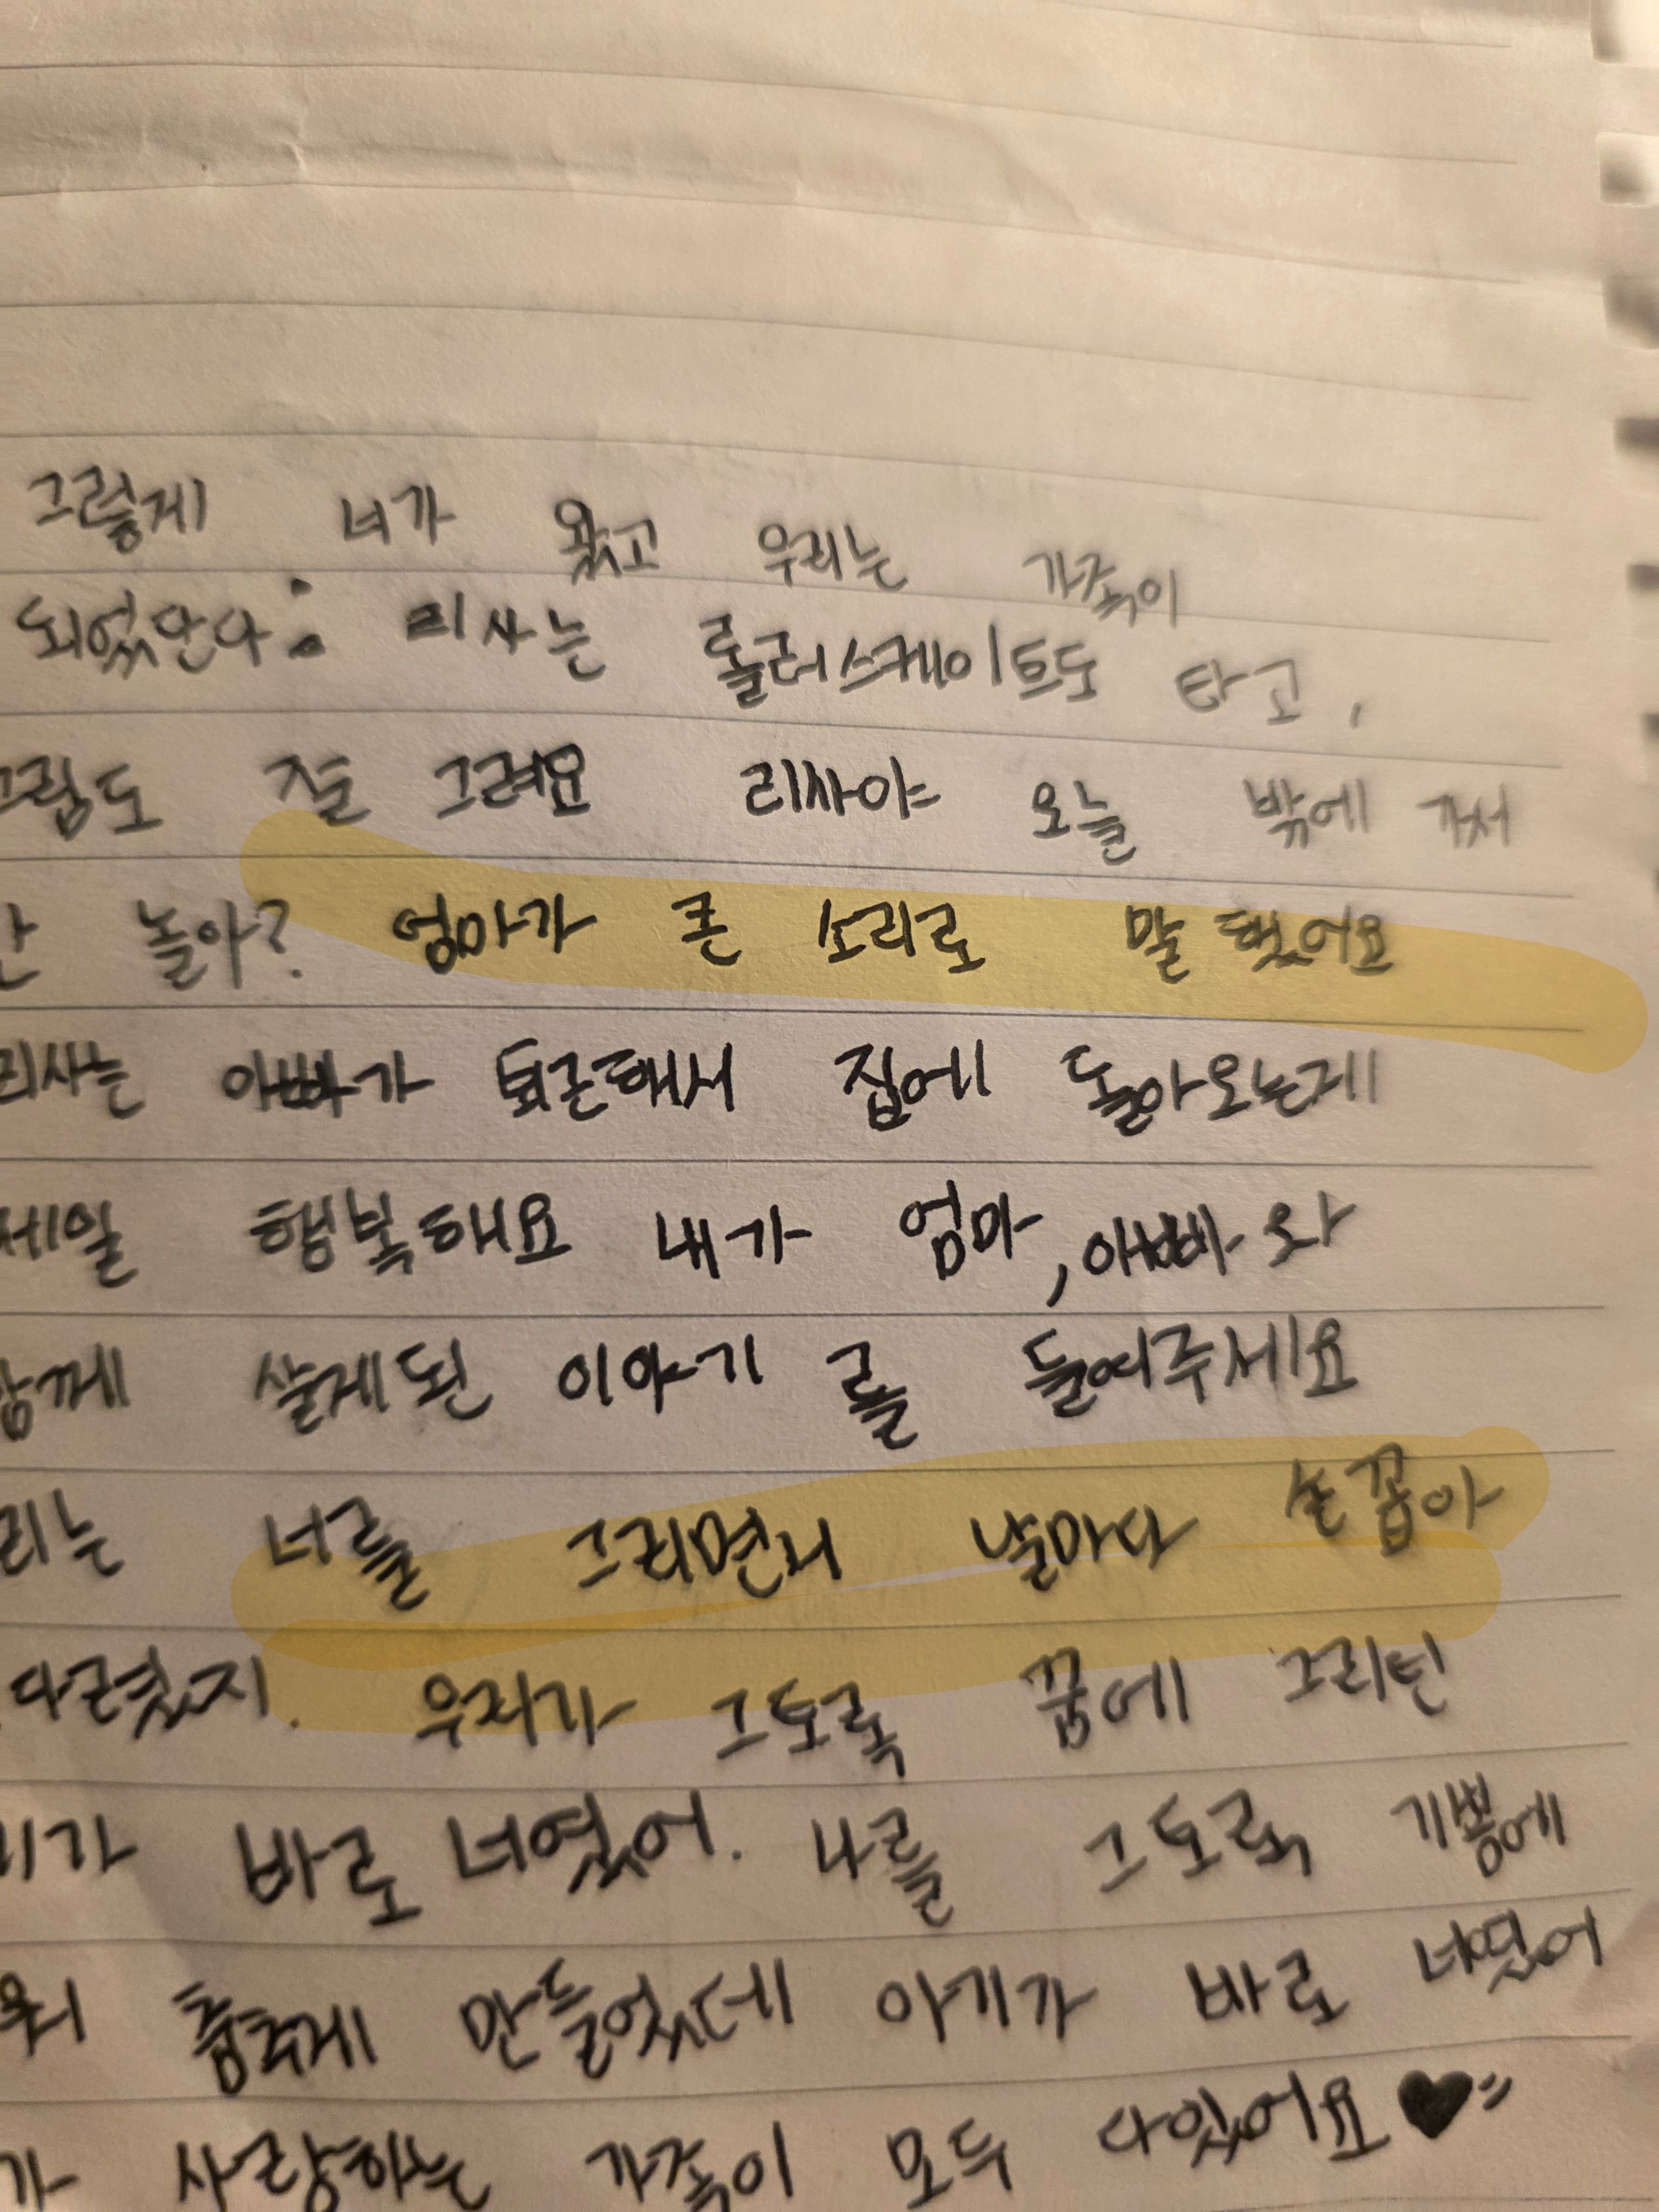 그렇게 너가 왔고 우리는 가족이
되었단다: 리사는 롤러스케이트도 타고,
그림도 잘 그려요 리사야 오늘 밖에 가서
안 놀아? 엄마가 큰 소리로 말했어요
리사는 아빠가 퇴근해서 집에 돌아오는게
제일 행복해요 내가 엄마, 아빠와
함께 살게된 이야기를 들여주세요
리는 너를 그리면서 날마다 손꼽아
다렸지. 우리가 그토록 꿈에 그리던
가 바로 너였어. 나를 그토록 기쁨에
춤추게 만들었는데 아기가 바로 너였어
가 사랑하는 가족이 모두 다있어요♥